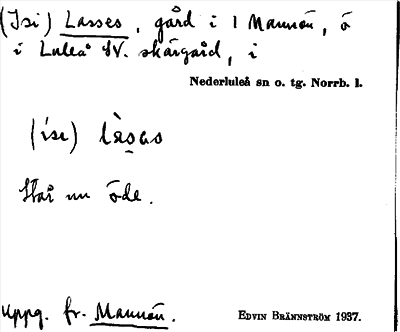 (Isi) Lasses, gård i 1 Mannön, ö
i Luleå SV. skärgård, i
Nederluleå sn o. tg. Norrb. l.
(ise) làsas
Står nu öde.
Uppg. fr. Mannön.
EDVIN BRÄNNSTRÖM 1937.